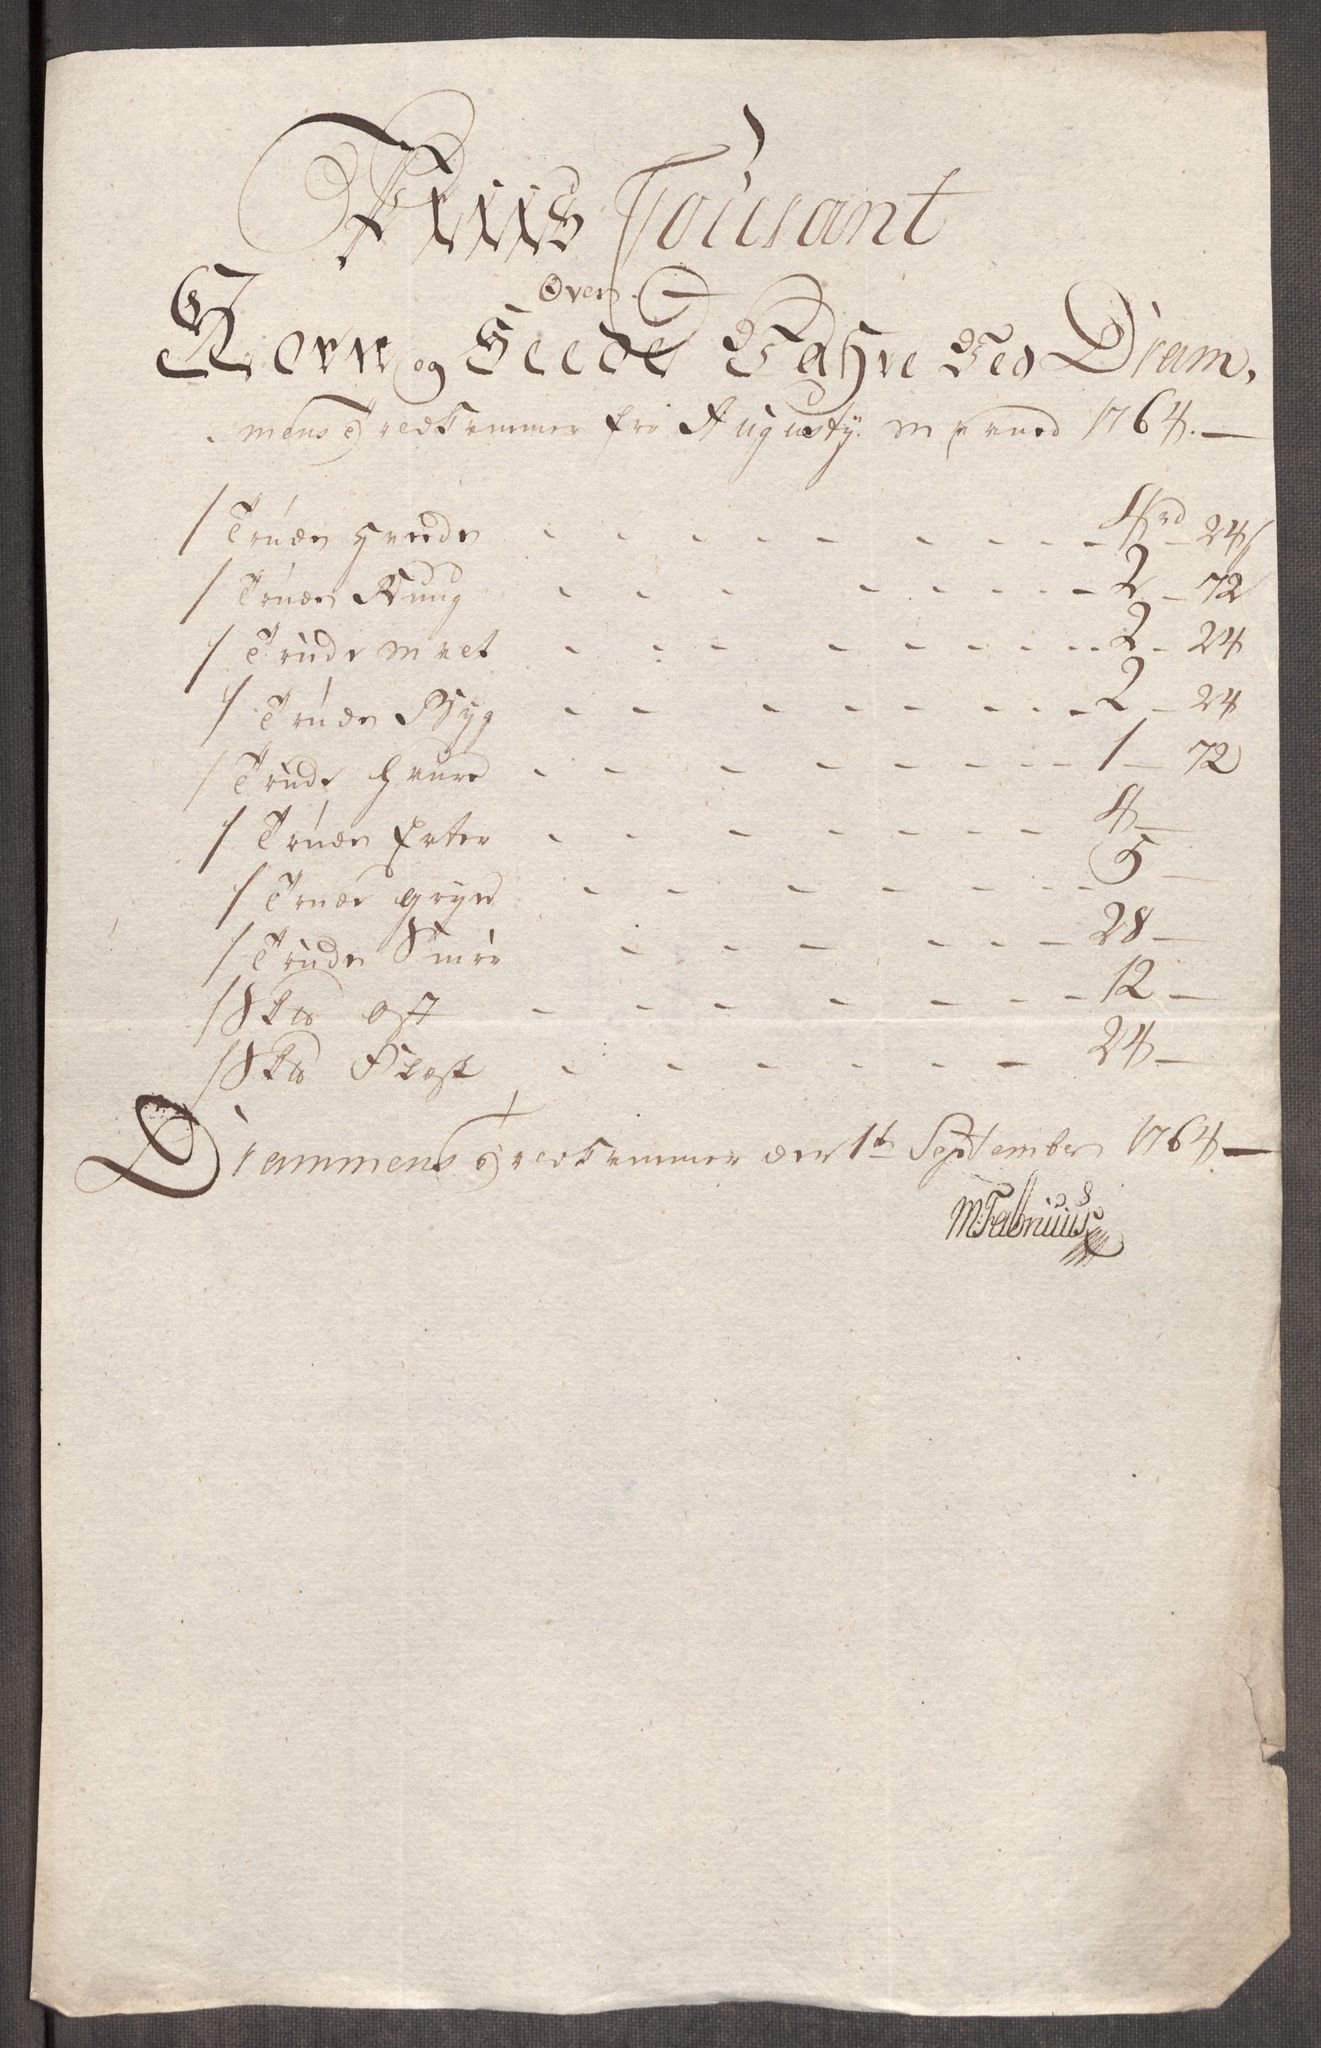 Priis Courant
Over
Korn og Feede Vahre Ved Dram,
mens Toldkammer fra Augusty Maaned 1764.
1 Tønde Hvede 4 rd 24 s
1 Tønde Rug 2 - 72
1 Tønde Malt 2 - 24
1 Tønde Byg 2 - 24
1 Tønde Havre 1 - 72
1 Tønde Erter 4
1 Tønde Gryn 5
1 Tønde Smør 28
1 Skd Ost 12
1 Skd Flesk 24
Drammens Toldkammer den 1t September 1764.
M: Fabriciius